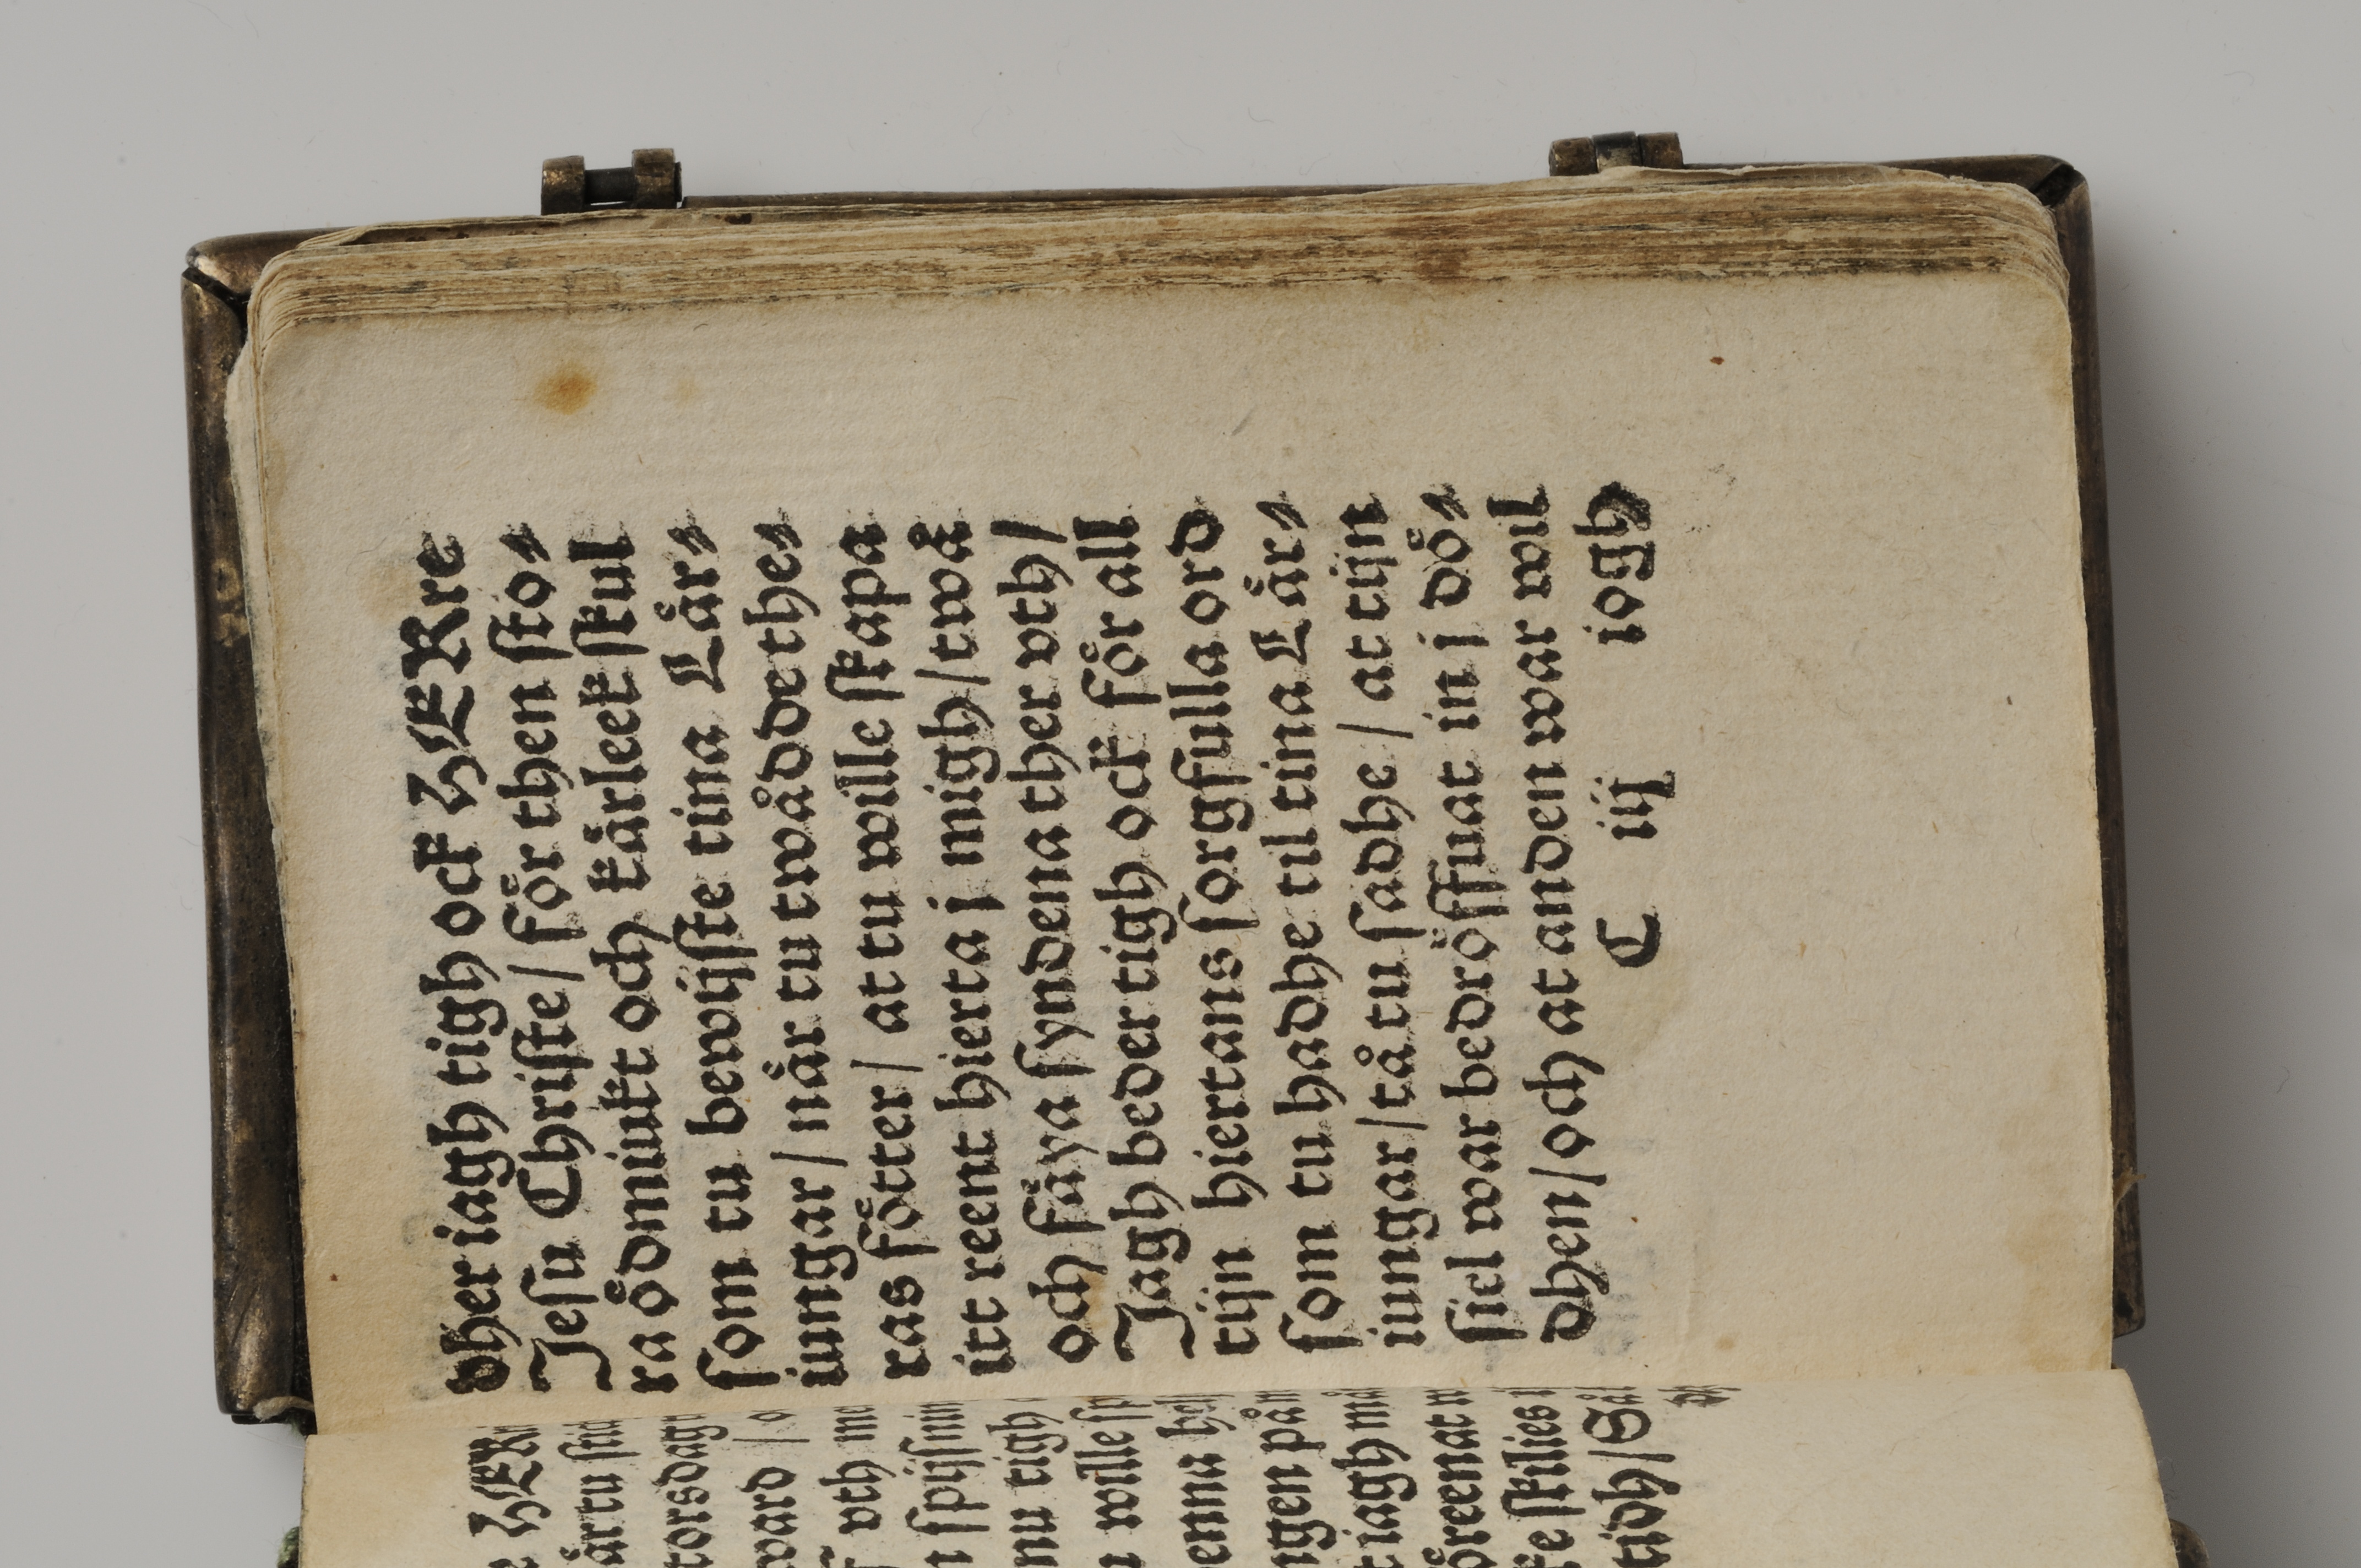 ward /
vth
nu tigh
wille
iagh
ſkilies
tidh/
dher iagh tigh ock HERre
Jeſu Chriſte/ för then ſto⸗
ra ödmiukt och kärleek ſkul
ſom tu bewijſte tina Lär⸗
iungar/ när tu twådde the⸗
ras fötter/ at tu wille ſkapa
itt reent hierta j migh/ twå
och fäya ſyndena ther vth/
Jagh beder tigh ock för all
tijn hiertans ſorgfulla ord
ſom tu hadhe til tina Lär⸗
iungar/ tå tu ſadhe/ at tijn
ſiel war bedröffuat in j dö⸗
dhen/ och at anden war wil
C iij iogh